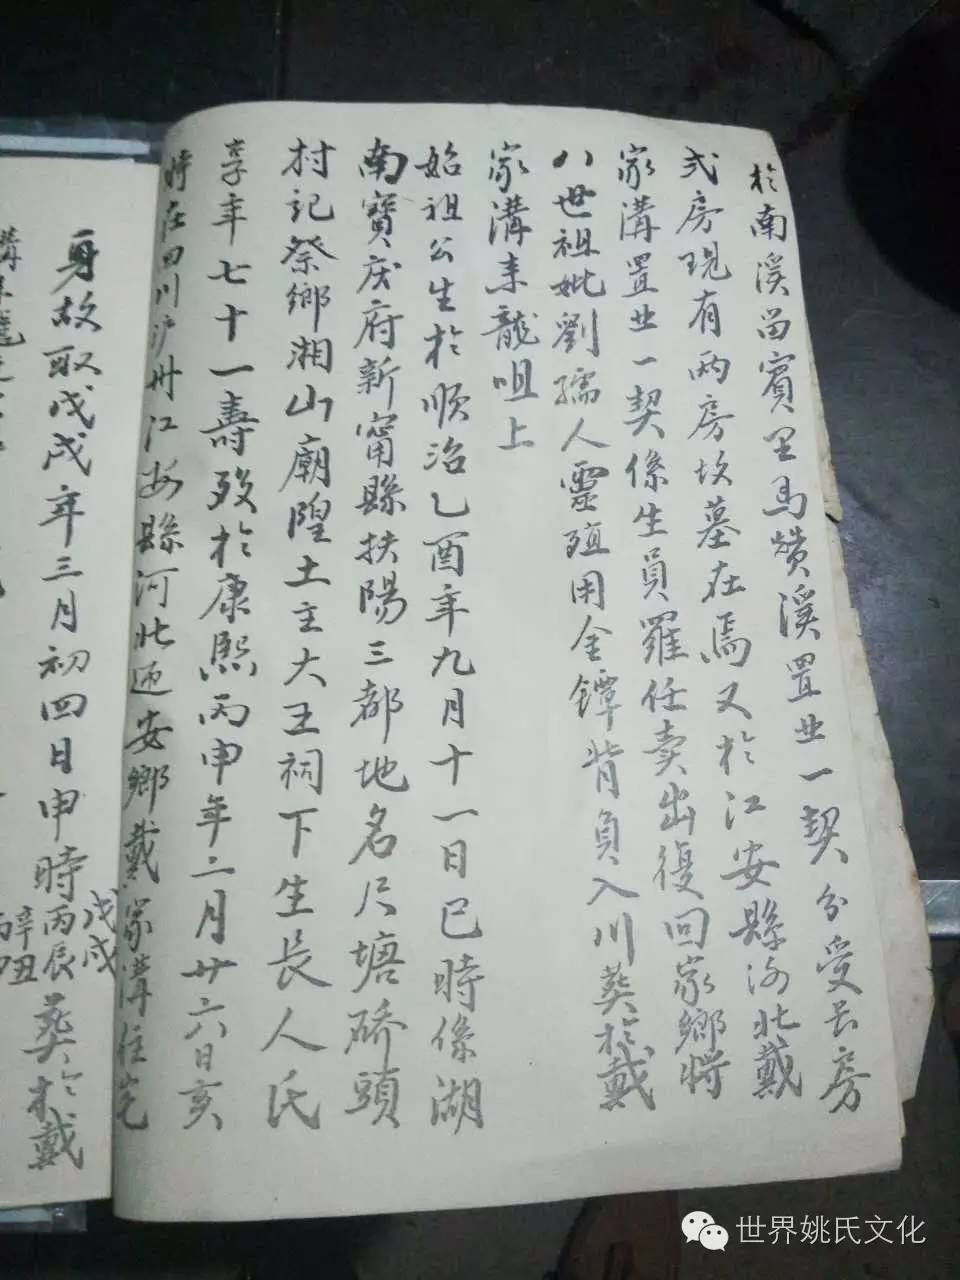 於南溪畄賓里馬鐢溪置业一契分受長房
弍房現有两房坟墓在焉又於江安縣河北戴
家溝置业一契係生員羅任卖出復回家鄉將
八世祖妣劉孺人靈殖用金罈背負入川葬於戴
家溝来龍咀上
始祖公生於顺治乙酉年九月十一日巳時係湖
南寶庆府新甯縣扶陽三都地名尺塘硚頭
村記祭鄉湘山廟隍土主大王祠下生長人氏
享年七十一壽歿於康熙丙申年二月廿六日亥
時在四川泸州江安縣河北迊安鄉戴家溝住宅
身故取戊戌年三月初四日申時戊戌丙辰辛丑丙申葬於戴
溝来龍
世界姚氏文化